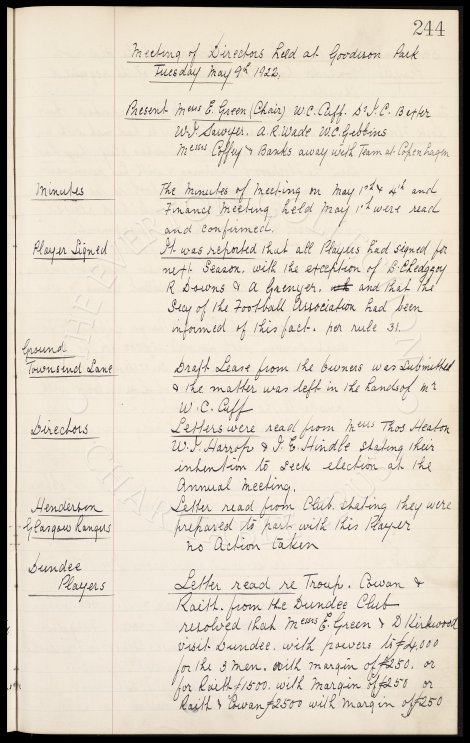 244
Meeting of Directors held at Goodison Park
Tuesday May 9th 1922.
Present Messrs E. Green (Chair) W.C. Cuff. Dr J.C. Baxter
W.J. Sawyer. A.R. Wade W.C. Gibbins
Messrs Coffey & Banks away with Team at Copenhagen
Minutes The Minutes of Meeting on May 1st & 4th and
Finance Meeting held May 1st were read
and confirmed.
Player Signed It was reported that all Players had signed for
next Season. with the exception of B Chedgzoy
R Downs & A Grenyer. and that the
Secy of the Football Association had been
informed of this fact. per rule 31.
Ground
Townsend Lane Draft Lease from the Owners was Submitted
& the matter was left in the hands of Mr
W.C. Cuff
Directors Letters were read from Messrs Thos Heaton
W.J. Harrop & J.E. Hindle stating their
intention to seek election at the
Annual Meeting.
Henderson Letter read from Club. stating they were
Glasgow Rangers prepared to part with this Player
no Action taken
Dundee
Players Letter read re Troup. Cowan &
Raith. from the Dundee Club
resolved that Messrs E. Green & D Kirkwood
visit Dundee. with powers to £4,000
for the 3 men. with margin of £250. or
for Raith £1500. with margin of £250 or
Raith & Cowan £2500 with margin of £250